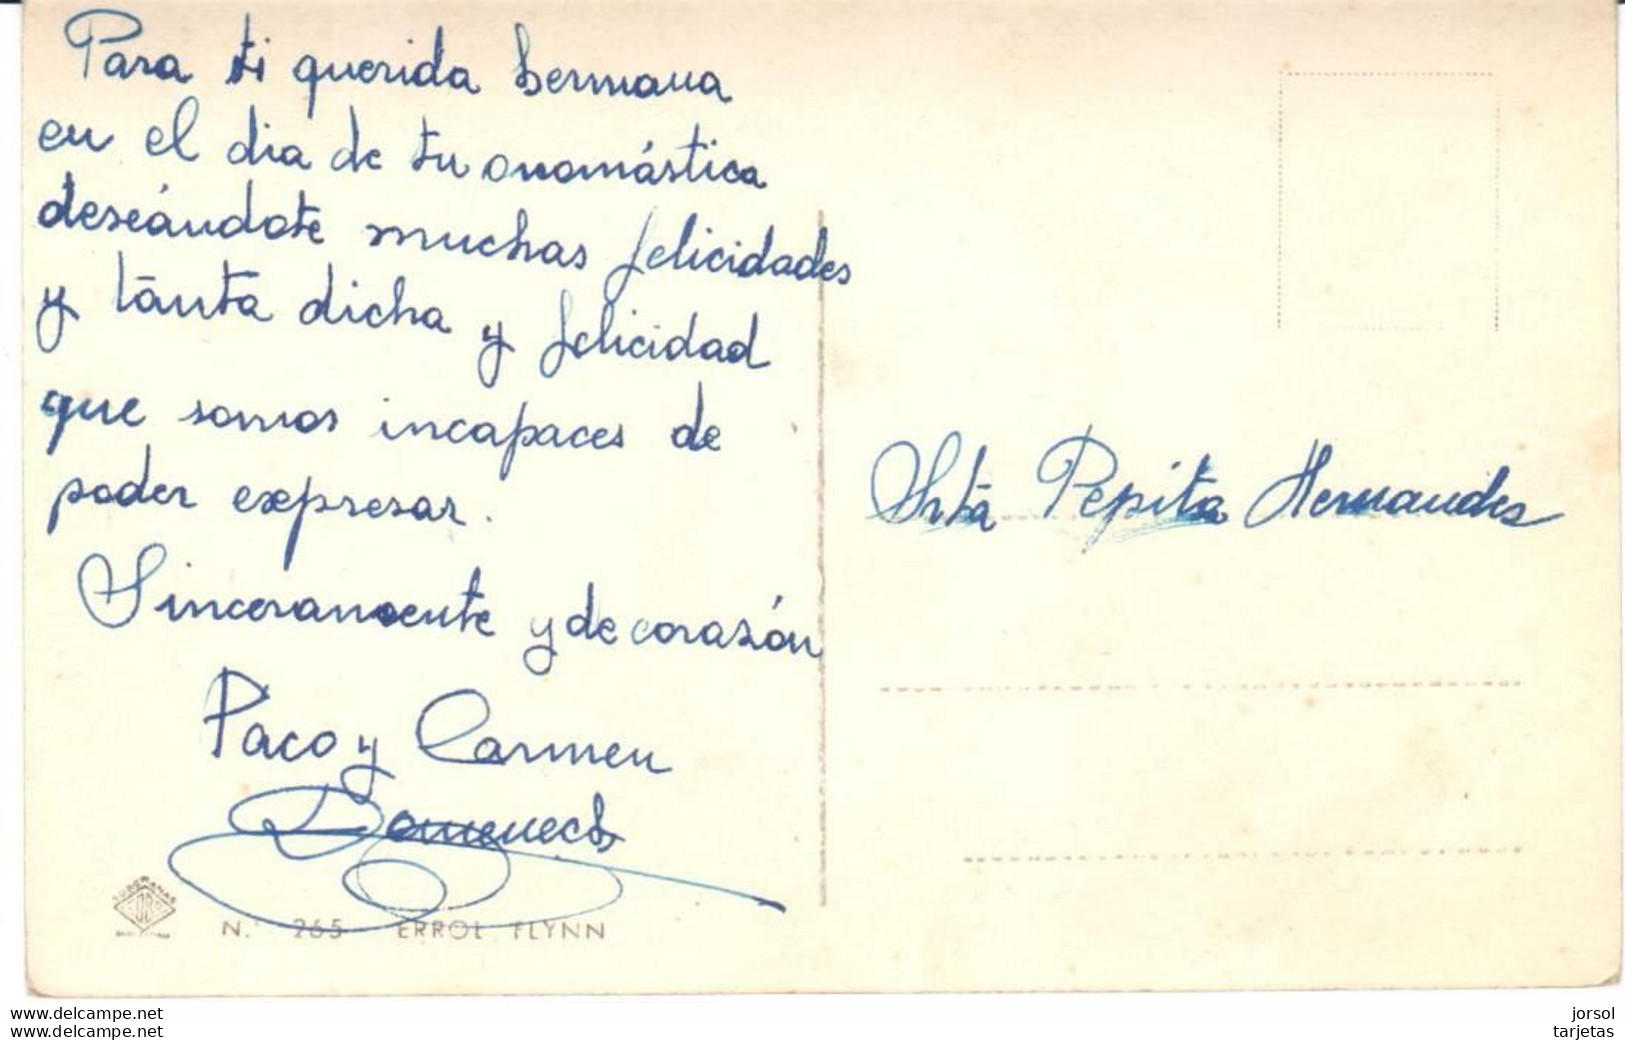 Para ti querida hermana
en el dia de tu onomástica
deseándote muchas felicidades
y tánta dicha y felicidad
que somos incapaces de
poder expresar.
Sinceramente y de corazón
Paco y Carmen
Domenech
N. 265 ERROL FLYNN
Srta Pepita Hernandes
www.delcampe.net
www.delcampe.net
jorsol
tarjetas